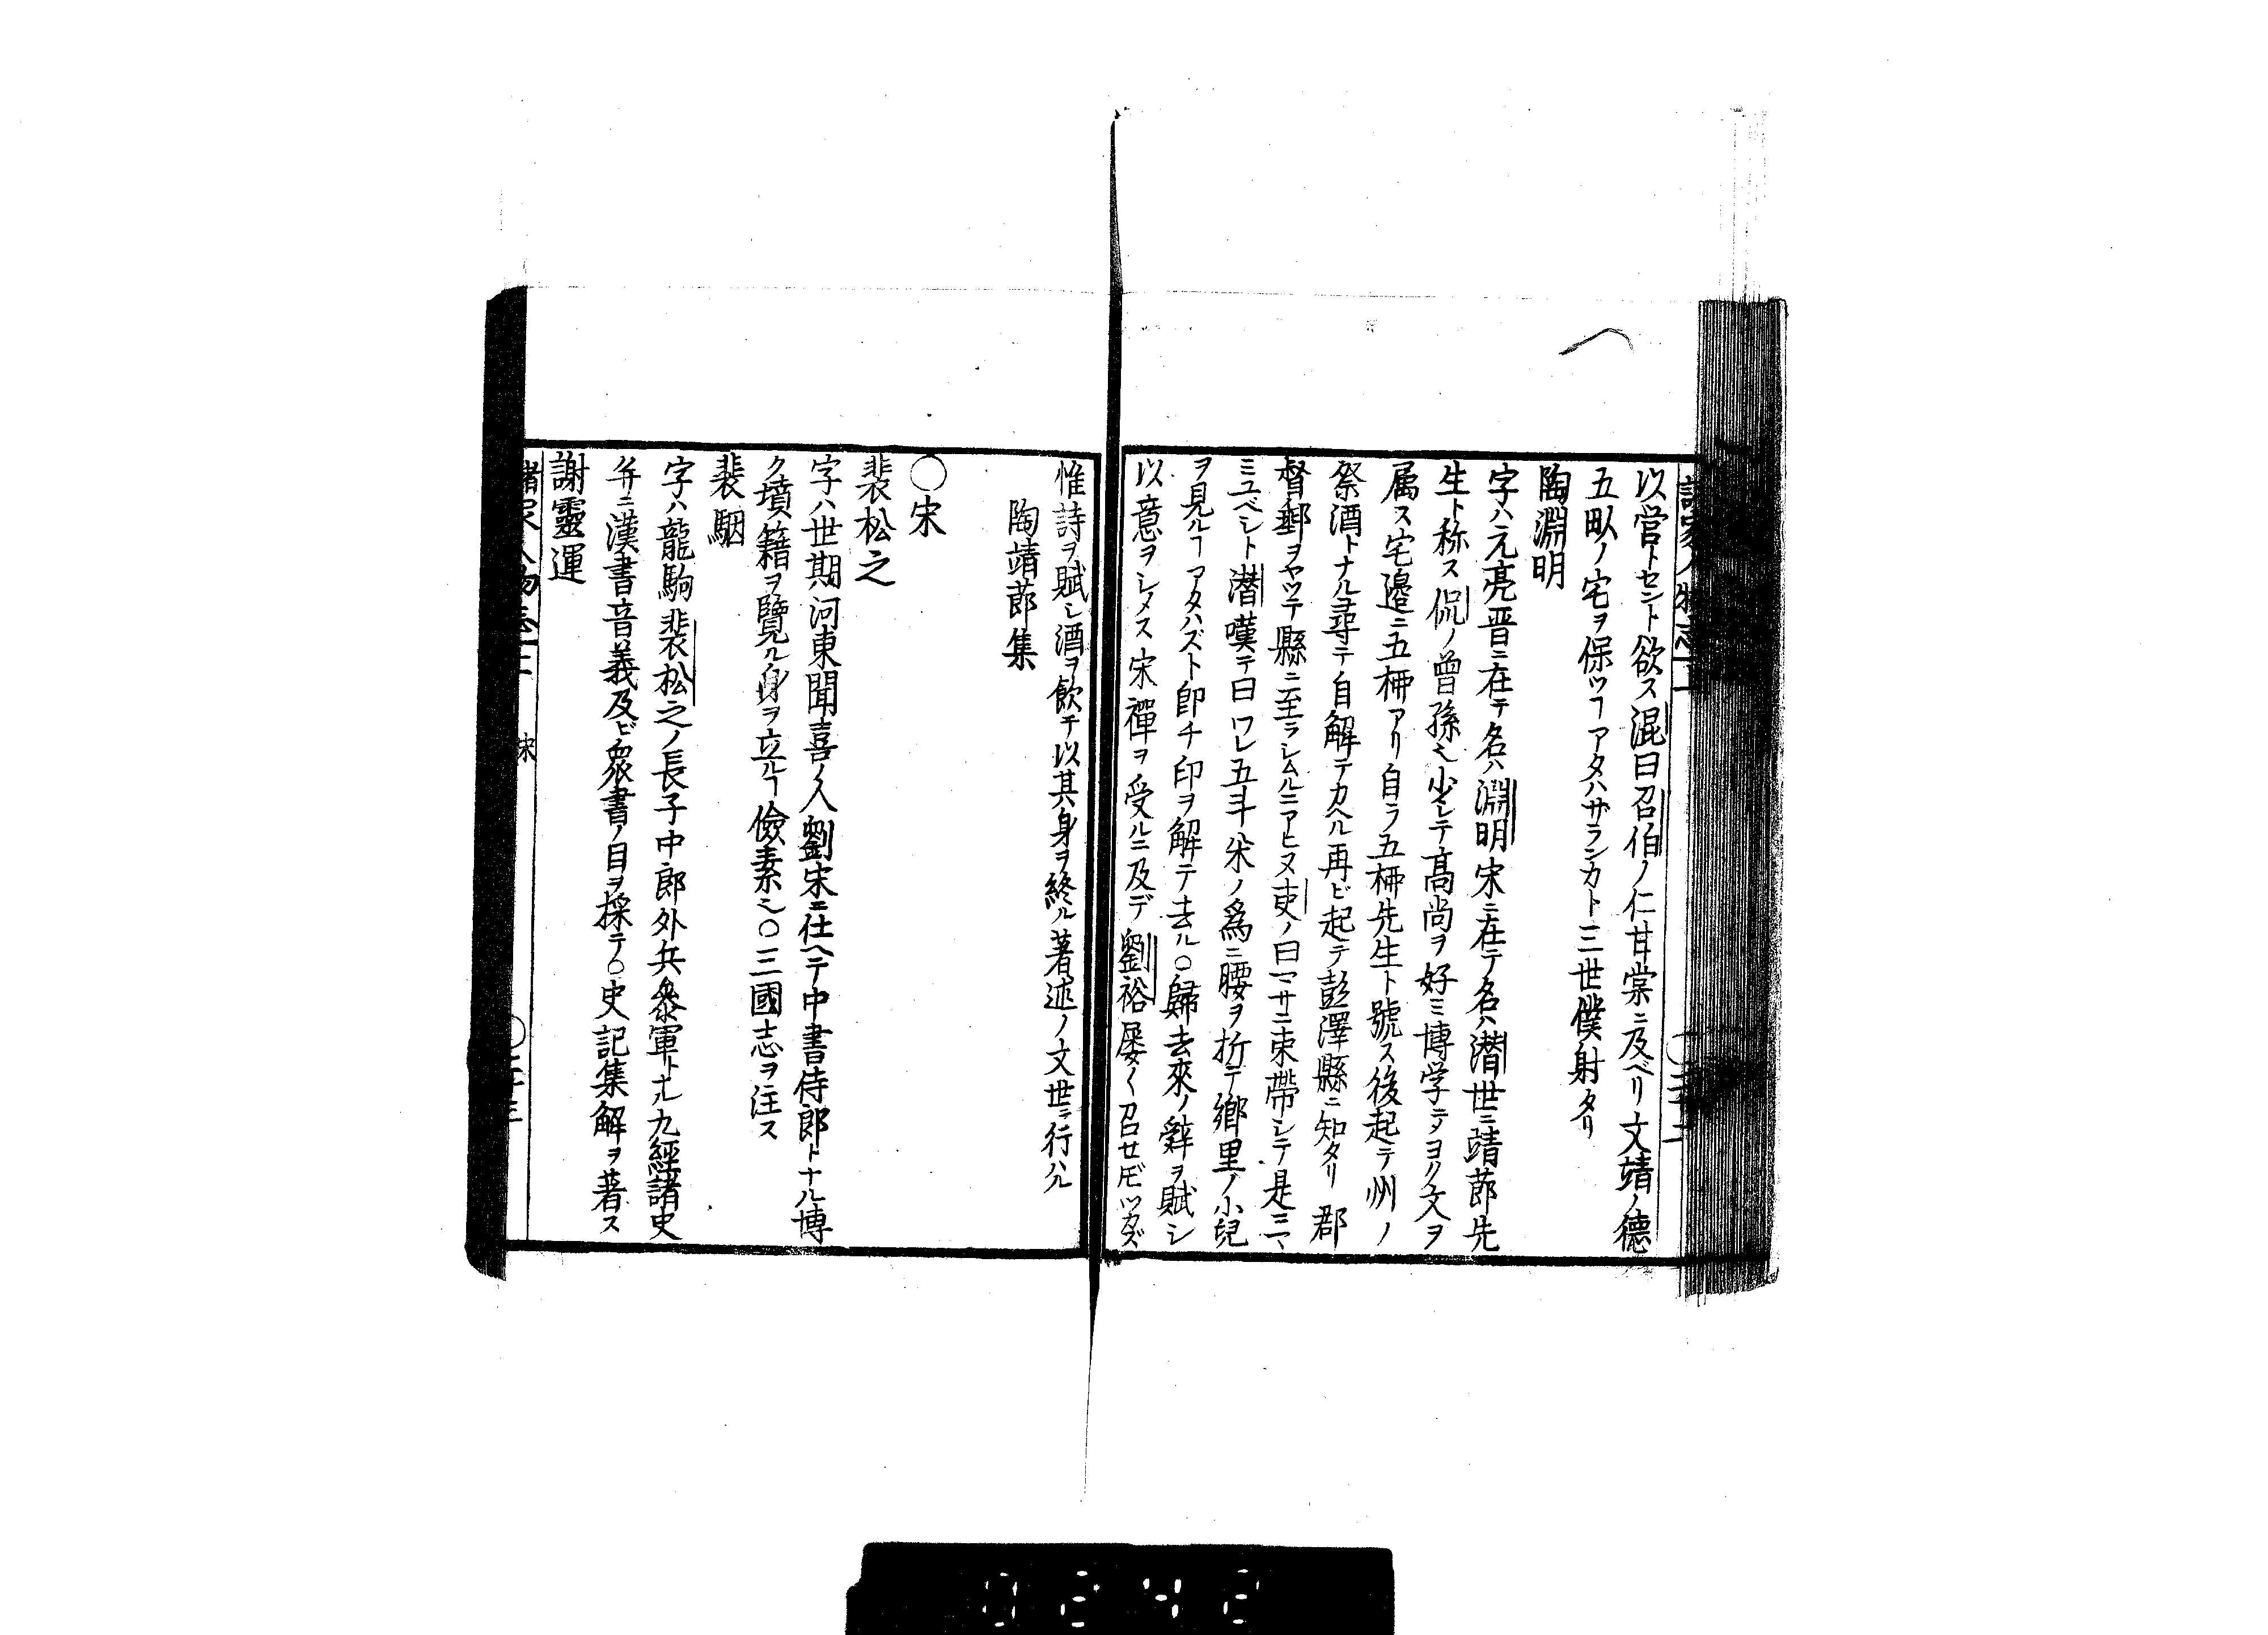 以営トセント欲ス混曰召伯ノ仁甘棠ニ及ベリ文靖ノ德
五畝ノ宅ヲ保ツヿアタハザランカト三世僕射タリ
陶淵明
字ハ元亮晋ニ在テ名ハ淵明宋ニ在テ名ハ潜世ニ靖節先
生ト称ス侃ノ曾孫也少シテ高尚ヲ好ミ博学ニヨク文ヲ
属ス宅邉ニ五栁アリ自ラ五栁先生ト號ス後起テ州ノ
祭酒トナル尋テ自解テカヘル再ビ起テ彭澤縣ニ知タリ郡
督郵ヲヤツテ縣ニ至ラシムルニアヒヌ吏ノ曰マサニ束帶シテ是ニマ
ミユベシト潜嘆テ曰ワレ五斗米ノ爲ニ腰ヲ折テ鄉里ノ小兒
ヲ見ルヿアタハズト卽チ印ヲ解テ去ル○歸去來ノ辭ヲ賦シ
以意ヲシメス宋禪ヲ受ルニ及デ劉裕屡〱召セ𪜈ツカズ
惟詩ヲ賦シ酒ヲ飮テ以其身ヲ終ル著述ノ文世ニ行ハル
陶靖節集
○宋
裴松之
字ハ世期河東聞喜ノ人劉宋ニ仕ヘテ中書侍郎トナル博
ク墳籍ヲ覽ル身ヲ立ルヿ儉素也○三國志ヲ注ス
裴駰
字ハ龍駒裴松之ノ長子中郎外兵參軍トナル九經諸史
并ニ漢書音義及ビ衆書ノ目ヲ採テ○史記集解ヲ著ス
謝靈運
諸家人物志二 宋 ○二十三
0242